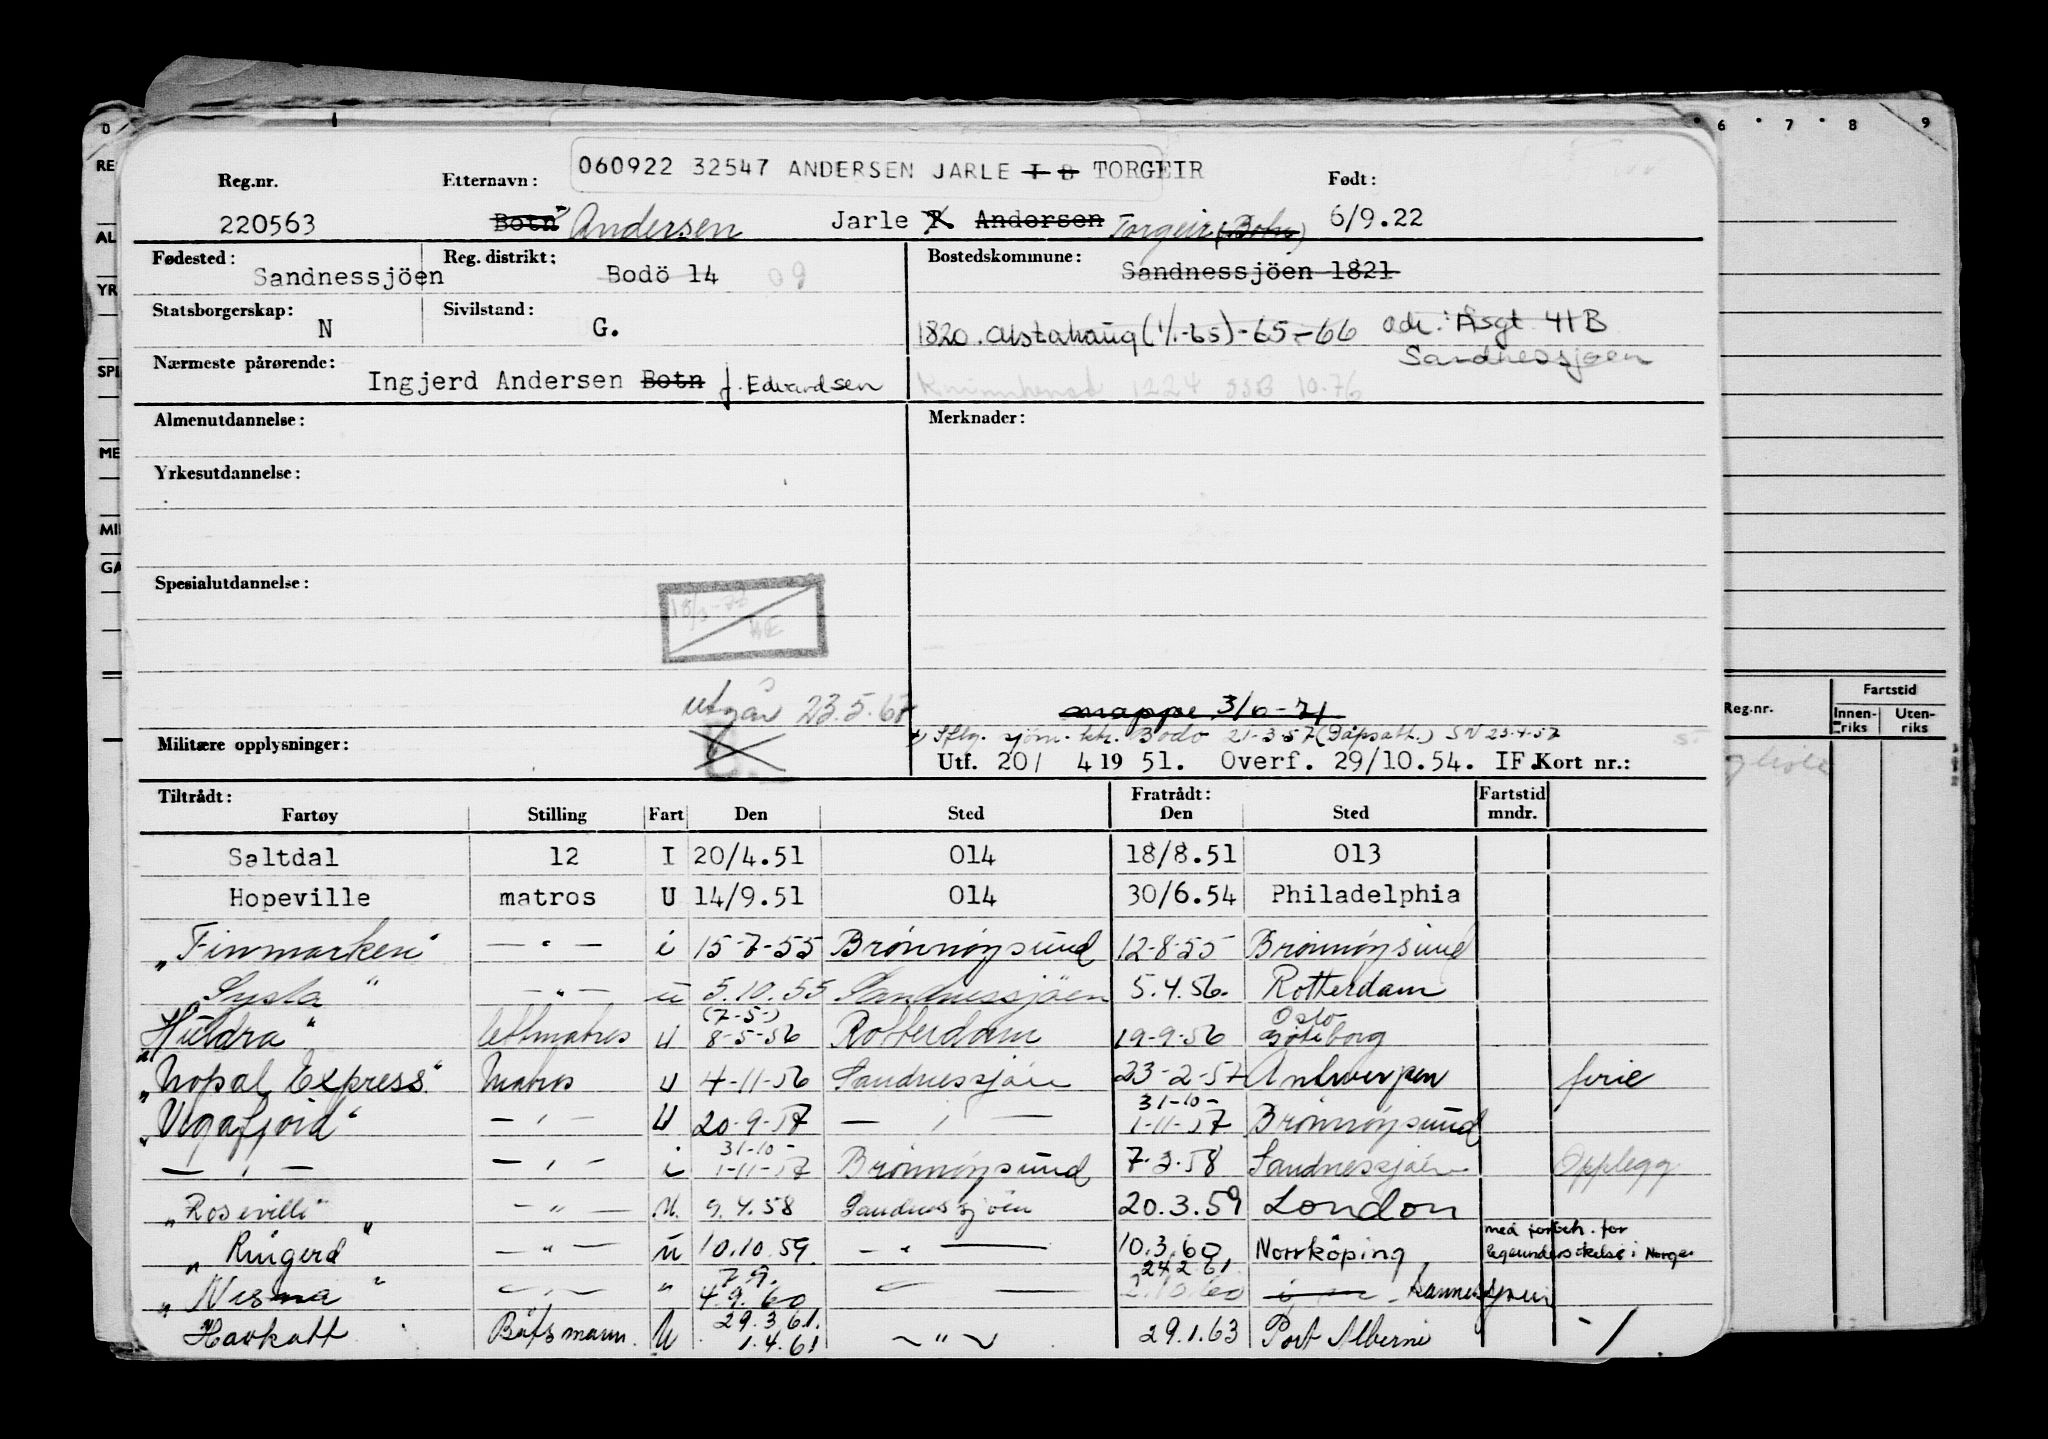 060922 32547 ANDERSEN JARLE T B TORGEIR
Reg.nr. Etternavn: Født:
220563 Botn Andersen Jarle T Andersen Torgeir (Botn) 6/9.22
Fødested: Reg. distrikt: Bostedskommune:
Sandnessjöen Bodö 14 09 Sandnessjöen 1821
Statsborgerskap: Sivilstand:
N G. 1820. Alstahaug (1/1-65)-65-66 adr.: Åsgt. 41B
Sandnessjøen
Nærmeste pårørende:
Ingjerd Andersen Botn f. Edvardsen 1224 SSB 10.76
Almenutdannelse: Merknader:
Yrkesutdannelse:
Spesialutdannelse:
utgår 23.5.67
mappe 3/6-71
Militære opplysninger:
Iflg. sjøm. ktr. Bodø 21-3-57 (Dåpsatt.) SN 23-4-57
Utf. 20/ 4 19 51. Overf. 29/10.54. IF. Kort nr.:
Tiltrådt: Fratrådt: Fartstid
Fartøy Stilling Fart Den Sted Den Sted mndr.
Saltdal 12 I 20/4.51 014 18/8.51 013
Hopeville matros U 14/9.51 014 30/6.54 Philadelphia
"Finmarken" — " — i 15-7-55 Brönnöysund 12-8-55 Brönnöysund
Sysla " — " — u 5.10.55 Sandnessjöen 5.4.56. Rotterdam
(7-5-) Oslo
"Huldra" lettmatros u 8-5-56 Rotterdam 19-9-56 Göteborg
"Nopal Express" Matros u 4-11-56 Sandnessjöen 23-2-57 Antwerpen ferie
31-10-
"Vegafjord" — " — u 20-9-57 — " — 1-11-57 Brönnöysund
31-10-
— " — — " — i 1-11-57 Brönnöysund 7-3-58 Sandnessjöen Opplegg
"Roseville" — " — u. 9.4.58 Sandnessjöen 20.3.59 London
med forbeh. for
"Ringerd" — " — u 10.10.59. — " — 10.3.60 Norrköping legeundersökelse i Norge
7.9. 24.2.61.
"Nesna" — " — " 4.9.60 " — 2.10.60 Sannessjøen
29.3.61.
"Havkatt Båtsmann. u 1.4.61 — " — 29.1.63 Port Alberni - /
D
RE
AL
YR
SPE
ME
MIL
GA
6 7 8 9
Reg.nr. Fartstid
Innenriks Utenriks